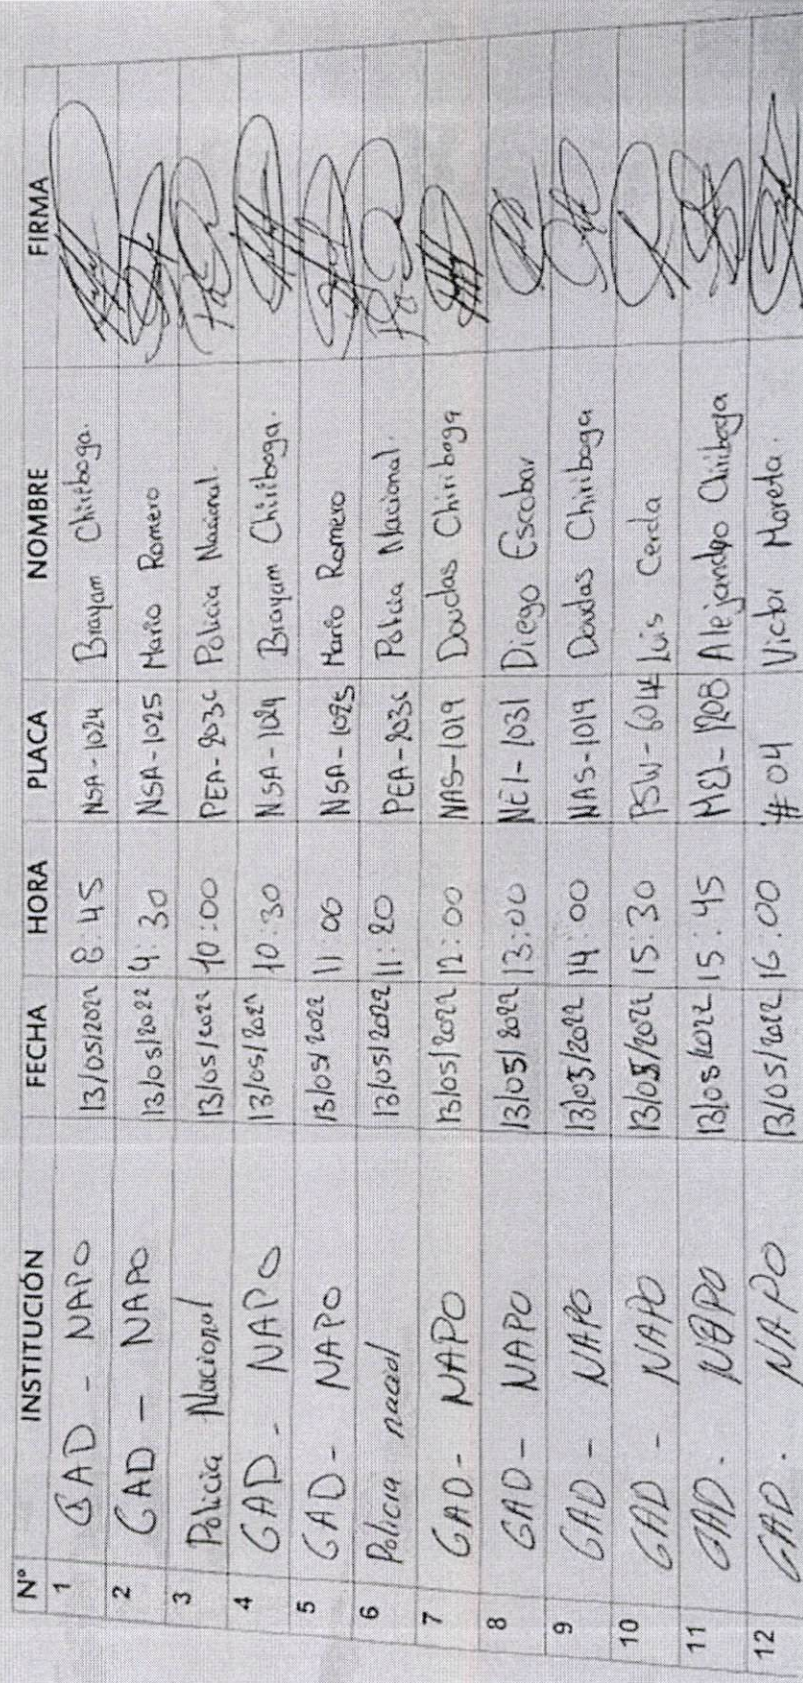 N° INSTITUCIÓN FECHA HORA PLACA NOMBRE FIRMA
1 GAD - NAPO 13/05/2022 8:45 NSA-1024 Brayam Chiriboga.
2 GAD - NAPO 13/05/2022 9:30 NSA-1025 Mario Romero
3 Policia Nacional 13/05/2022 10:00 PEA-2036 Policia Nacional.
4 GAD - NAPO 13/05/2022 10:30 NSA-1024 Brayam Chiriboga.
5 GAD - NAPO 13/05/2022 11:00 NSA-1025 Mario Romero
6 Policia 13/05/2022 11:20 PEA-2036 Policia Nacional.
7 GAD - NAPO 13/05/2022 12:00 NAS-1019 Douclas Chiriboga
8 GAD - NAPO 13/05/2022 13:00 NEI-1031 Diego Escobar
9 GAD - NAPO 13/05/2022 14:00 NAS-1019 Douclas Chiriboga
10 GAD - NAPO 13/05/2022 15:30 Luis Cerda
11 GAD. NAPO 13/05/2022 15:45 Alejandro Chiriboga
12 GAD. NAPO 13/05/2022 16:00 #04 Victor Moreta.